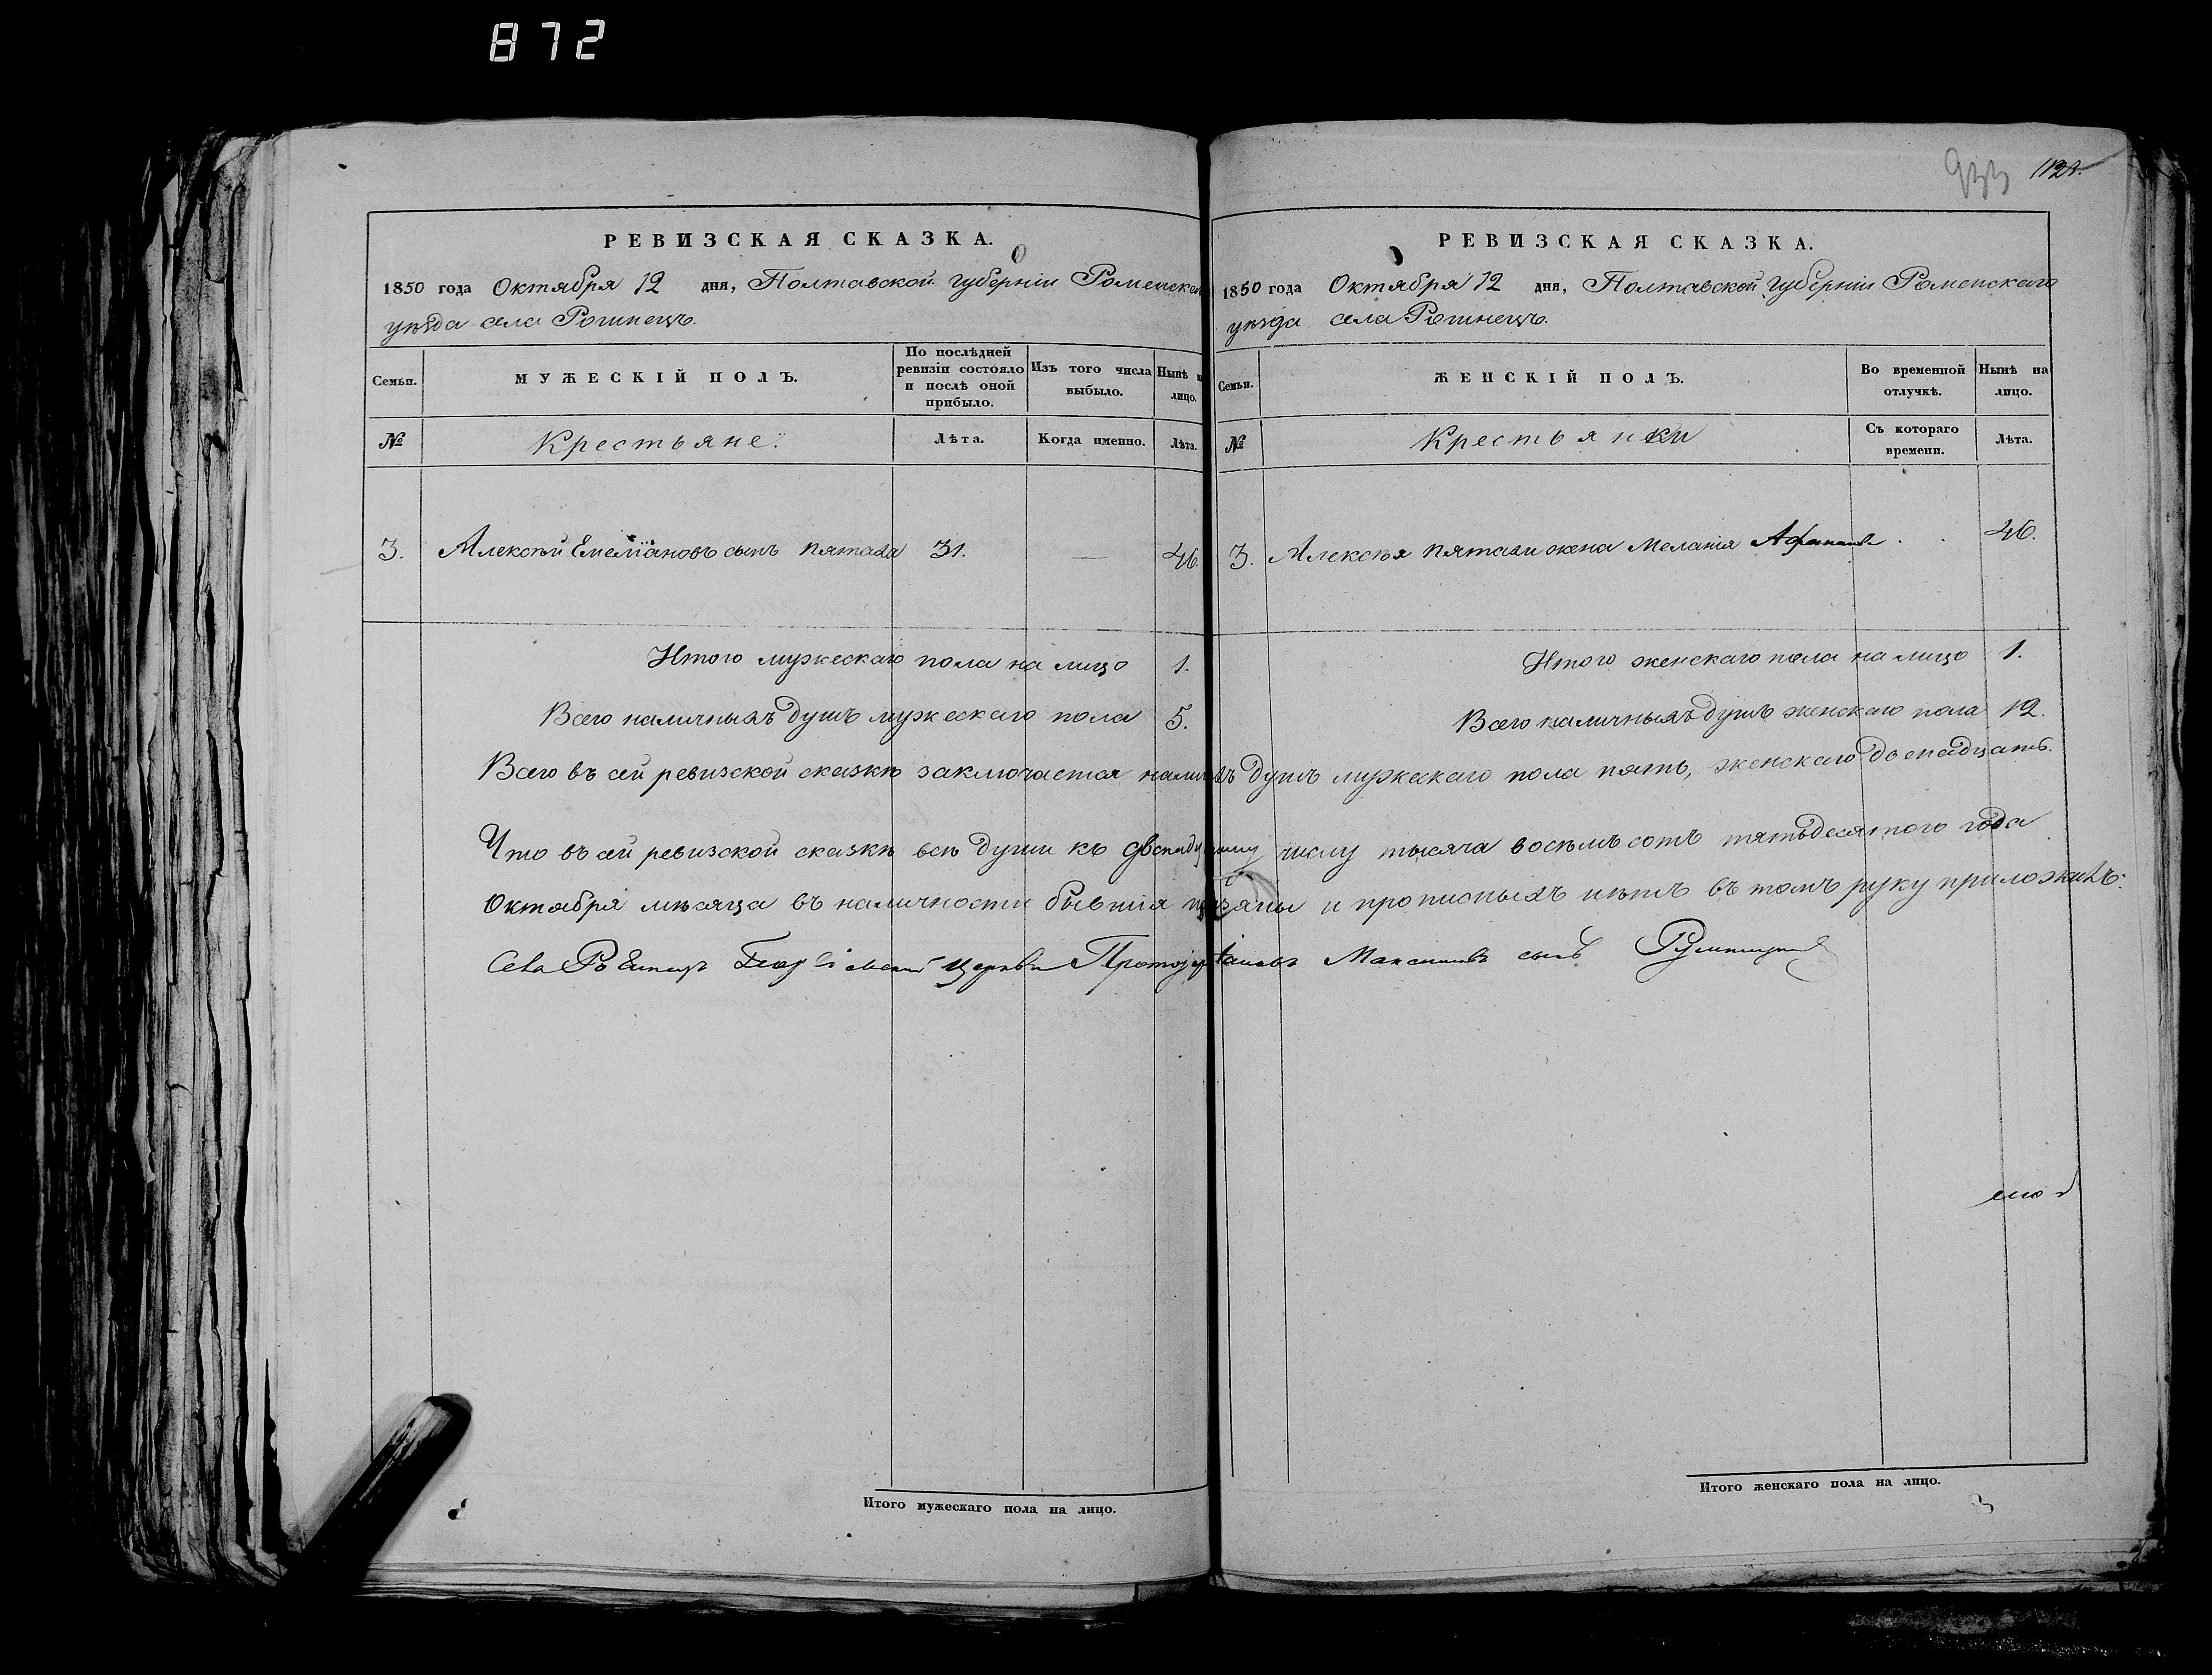 872
933 1121.
РЕВИЗСКАЯ СКАЗКА.
1850 года Октября 12 дня, Полтавской губерніи Роменска
уѣзда села
Семьи.
МУЖЕСКІЙ ПОЛЪ.
По послѣдней ревизіи состояло и послѣ оной прибыло.
Изъ того числа выбыло.
Нынѣ н лицо.
№
Крестьяне:
Лѣта.
Когда именно.
Лѣта.
3. Алексѣй Емеліановъ сынъ Пятаха 31. — 46.
Итого мужескаго пола на лицо 1.
Всего наличныхъ душъ мужескаго пола 5.
РЕВИЗСКАЯ СКАЗКА.
1850 года Октября 12 дня, Полтавской губерніи Роменскаго
уѣзда села
Семьи.
ЖЕНСКІЙ ПОЛЪ.
Во временной отлучкѣ.
Нынѣ на лицо.
№
Крестьянки
Съ котораго времени.
Лѣта.
3. Алексѣя Пятахи жена Меланія 46.
Итого женскаго пола на лицо 1.
Всего наличныхъ душъ женскаго пола 12.
Всего въ сей ревизской сказкѣ заключается душъ мужескаго пола пять, женскаго двенадцать.
Что въ сей ревизской сказкѣ всѣ души къ числу тысяча восемь сотъ пятьдесятого года
Октября мѣсяца въ наличности бывшія и прописныхъ нѣтъ въ томъ руку приложилъ:
Села Церкви Максимовъ сынъ
Итого мужескаго пола на лицо.
Итого женскаго пола на лицо.